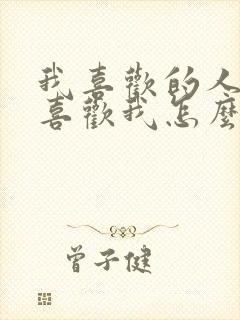 我喜歡的人
喜歡我怎麼
曾子健